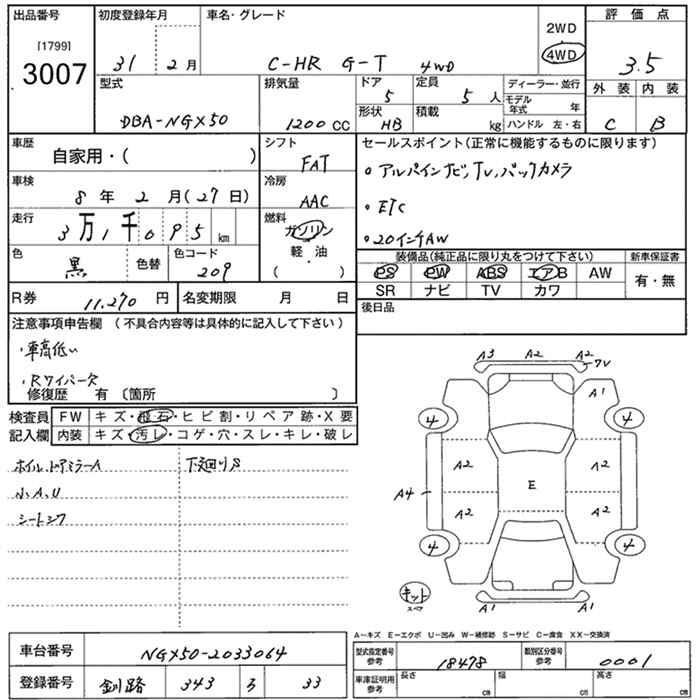 出品番号 初度登録年月 車名・グレード 評価点
[1799] 2WD
3007 31 2月 C-HR G-T 4WD 4WD 3.5
型式 排気量 ドア 定員 ディーラー・並行 外装 内装
5 5人 モデル年式 年
DBA-NGX50 1200CC 形状 HB 積載 kg ハンドル 左・右 C B
車歴 シフト セールスポイント(正常に機能するものに限ります)
自家用・( ) FAT 。アルパインナビ,TV,バックカメラ
車検 冷房
8年 2月(27日) AAC 。ETC
走行 燃料
3万1千095km ガソリン 。20インチAW
軽・油
( )
色 色替 色コード 装備品(純正品に限り丸をつけて下さい) 新車保証書
黒 209 PS PW ABS エアB AW 有・無
SR ナビ TV カワ
R券 11,270円 名変期限 月 日 後日品
注意事項申告欄 (不具合内容等は具体的に記入して下さい)
・車高低い
・Rワイパーダ
修復歴 有 〔箇所 〕
検査員 FW キズ・飛石・ヒビ割・リペア跡・X要
記入欄 内装 キズ・汚レ・コゲ・穴・スレ・キレ・破レ
ホイル,ドアミラーA 下廻りS
小,A,U
シートシワ
A3 A2 A2 7V
A1
4 4
A2 A2
A4 E
A2 A2
4 4
キット A1 A1
A-キズ E-エクボ U-凹み W-補修跡 S-サビ C-腐食 XX-交換済
車台番号 NGX50-2033064 型式指定番号 参考 18478 類別区分番号 参考 0001
登録番号 釧路 343 ろ 33 車庫証明用 参考 長さ cm 幅 cm 高さ cm